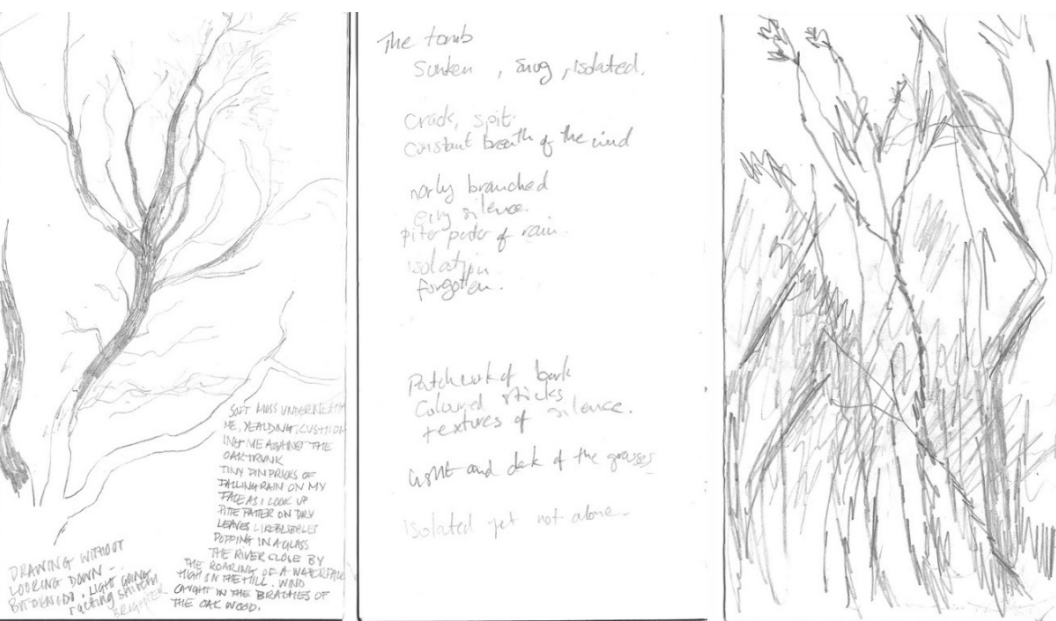 SOFT MOSS UNDERNEATH
ME, YEALDING, CUSHION
ING ME AGAINST THE
OAK TRUNK
TINY PIN PRICKS OF
FALLING RAIN ON MY
FACE AS I LOOK UP
PITTE PATTER ON DRY
LEAVES LIKE BUBBLES
POPPING IN A GLASS
THE RIVER CLOSE BY
THE ROARING OF A WATERFALL
HIGH IN THE HILL. WIND
CAUGHT IN THE BRACHES OF
THE OAK WOOD.
DRAWING WITHOUT
LOOKING DOWN –
LIGHT GOING
BRIGHTER
The tomb
Sunken, snug, isolated.
Crack, spit.
constant breath of the wind
narly branched
eiry silence.
piter pater of rain.
isolation
forgotten.
Patchwork of bark
Coloured sticks
textures of silence.
Light and dark of the grasses
Isolated yet not alone.